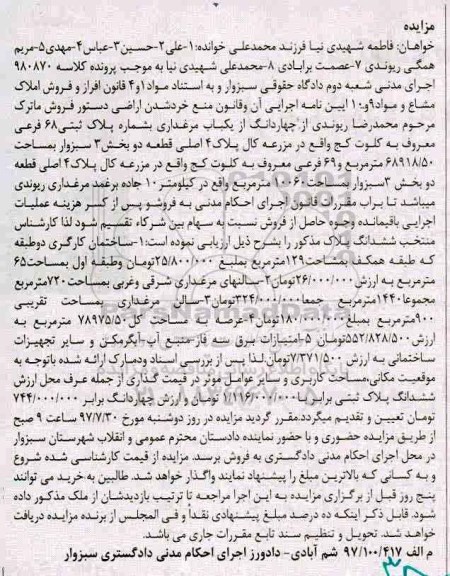 مزایده
خواهان: فاطمه شهیدی نیا فرزند محمدعلی خوانده:۱-علی۲-حسین۳-عباس۴-مهدی۵-مریم
همگی ریوندی ۷-عصمت برابادی ۸-محمدعلی شهیدی نیا به موجب پرونده کلاسه ۹۸۰۸۷۰
اجرای مدنی شعبه دوم دادگاه حقوقی سبزوار و به استناد مواد۱و۴ قانون افراز و فروش املاک
مشاع و مواد۹و۱۰ ایین نامه اجرایی آن وقانون منع خردشدن اراضی دستور فروش ماترک
مرحوم محمدرضا ریوندی از چهاردانگ از یکباب مرغداری بشماره پلاک ثبتی۶۸ فرعی
معروف به کلوت کج واقع در مزرعه کال پلاک۴ اصلی قطعه دو بخش۳ سبزوار بمساحت
۶۸۹۱۸/۵۰ مترمربع و۶۹ فرعی معروف به کلوت کج واقع در مزرعه کال پلاک۴ اصلی قطعه
دو بخش ۳سبزوار بمساحت۱۰۰۶۰ مترمربع واقع در کیلومتر۱۰ جاده برغمد مرغداری ریوندی
میباشد تا برابر مقررات قانون اجرای احکام مدنی به فروشو پس از کسر هزینه عملیات
اجرایی باقیمانده وجوه حاصل از فروش نسبت به سهام بین شرکاء تقسیم شود لذا کارشناس
منتخب ششدانگ پلاک مذکور را بشرح ذیل ارزیابی نموده است:۱-ساختمان کارگری دوطبقه
که طبقه همکف بمساحت۱۲۹مترمربع بمبلیغ ۲۵/۸۰۰/۰۰۰تومان وطبقه اول بمساحت۶۵
مترمربع به ارزش۲۶/۰۰۰/۰۰۰تومان۲-سالنهای مرغداری شرقی وغربی بمساحت۷۲۰مترمربع
مجموعا۱۴۴۰مترمربع جمعا۳۲۴/۰۰۰/۰۰۰تومان۳-سالن مرغداری بمساحت تقریبی
۹۰۰مترمربع بمبلغ ۱۸۰/۰۰۰/۰۰۰تومان۴-عرصه به مساحت کل۷۸۹۷۵/۵۰ مترمربع به
ارزش۵۵۲/۸۲۸/۵۰۰تومان ۵-امتیازات برق سه فاز-منبع آب-آبگرمکن و سایر تجهیزات
ساختمانی به ارزش ۷/۳۷۱/۵۰۰تومان.لذا پس از بررسی اسناد ومدارک ارائه شده باتوجه به
موقعیت مکانی،مساحت کاربری و سایر عوامل موثر در قیمت گذاری از جمله عرف محل ارزش
ششدانگ پلاک ثبتی برابر با۱/۱۱۶/۰۰۰/۰۰۰ تومان و ارزش چهاردانگ برابر ۷۴۴/۰۰۰/۰۰۰
تومان تعیین و تقدیم میگردد.مقرر گردید مزایده در روز دوشنبه مورخ ۹۷/۷/۳۰ ساعت ۹ صبح
از طریق مزایده حضوری و با حضور نماینده دادستان محترم عمومی و انقلاب شهرستان سبزوار
در محل اجرای احکام مدنی دادگستری به فروش برسد. مزایده از قیمت کارشناسی شده شروع
و به کسانی که بالاترین مبلغ را پیشنهاد نمایند واگذار خواهد شد. طالبین به خرید می توانند
پنج روز قبل از برگزاری مزایده به این اجرا مراجعه تا ترتیب بازدیدشان از ملک مذکور داده
شود. قابل ذکر اینکه ده درصد مبلغ پیشنهادی نقداً و فی المجلس از برنده مزایده دریافت
خواهد شد. تحویل و تنظیم سند تابع مقررات جاری می باشد.
م الف ۹۷/۱۰۰/۴۱۷ شم آبادی- دادورز اجرای احکام مدنی دادگستری سبزوار